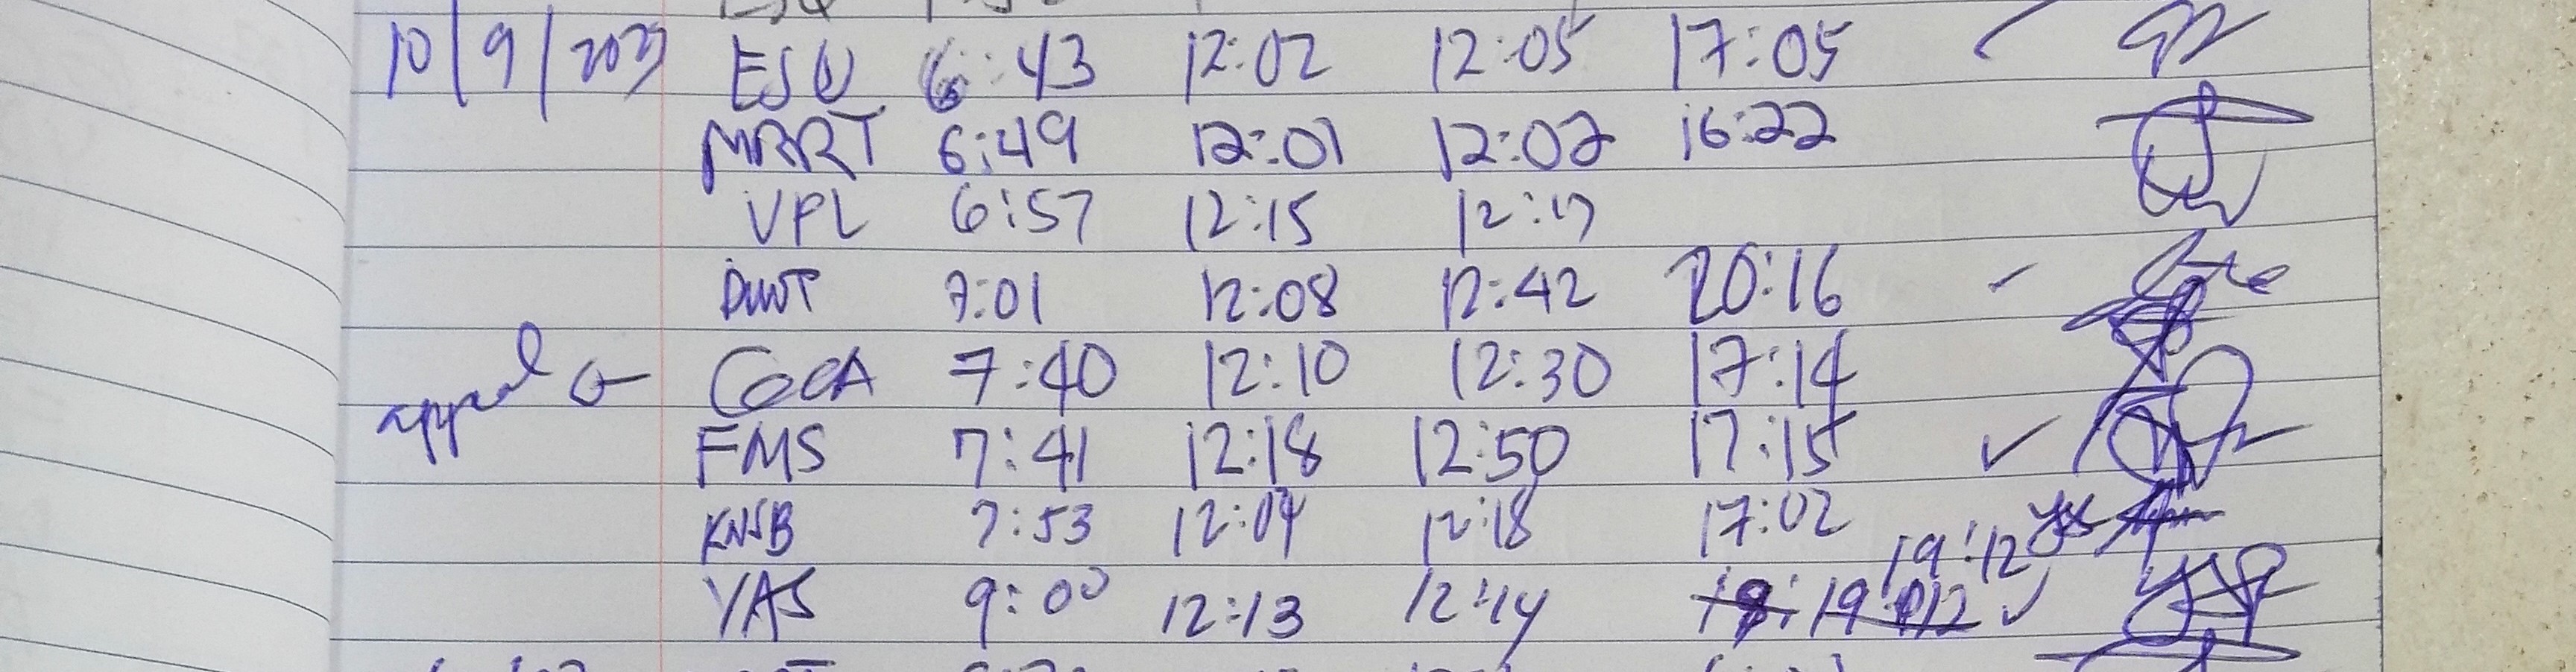 10/9/2023 ESU 6:43 12:02 12:05 17:05
MRRT 6:49 12:01 12:02 16:22
VPL 6:57 12:15 12:17
DWT 7:01 12:08 12:42 20:16
appeal CGCA 7:40 12:10 12:30 17:14
FMS 7:41 12:18 12:50 17:15
KNSB 7:53 12:04 12:18 17:02
19:12
YAS 9:00 12:13 12:14